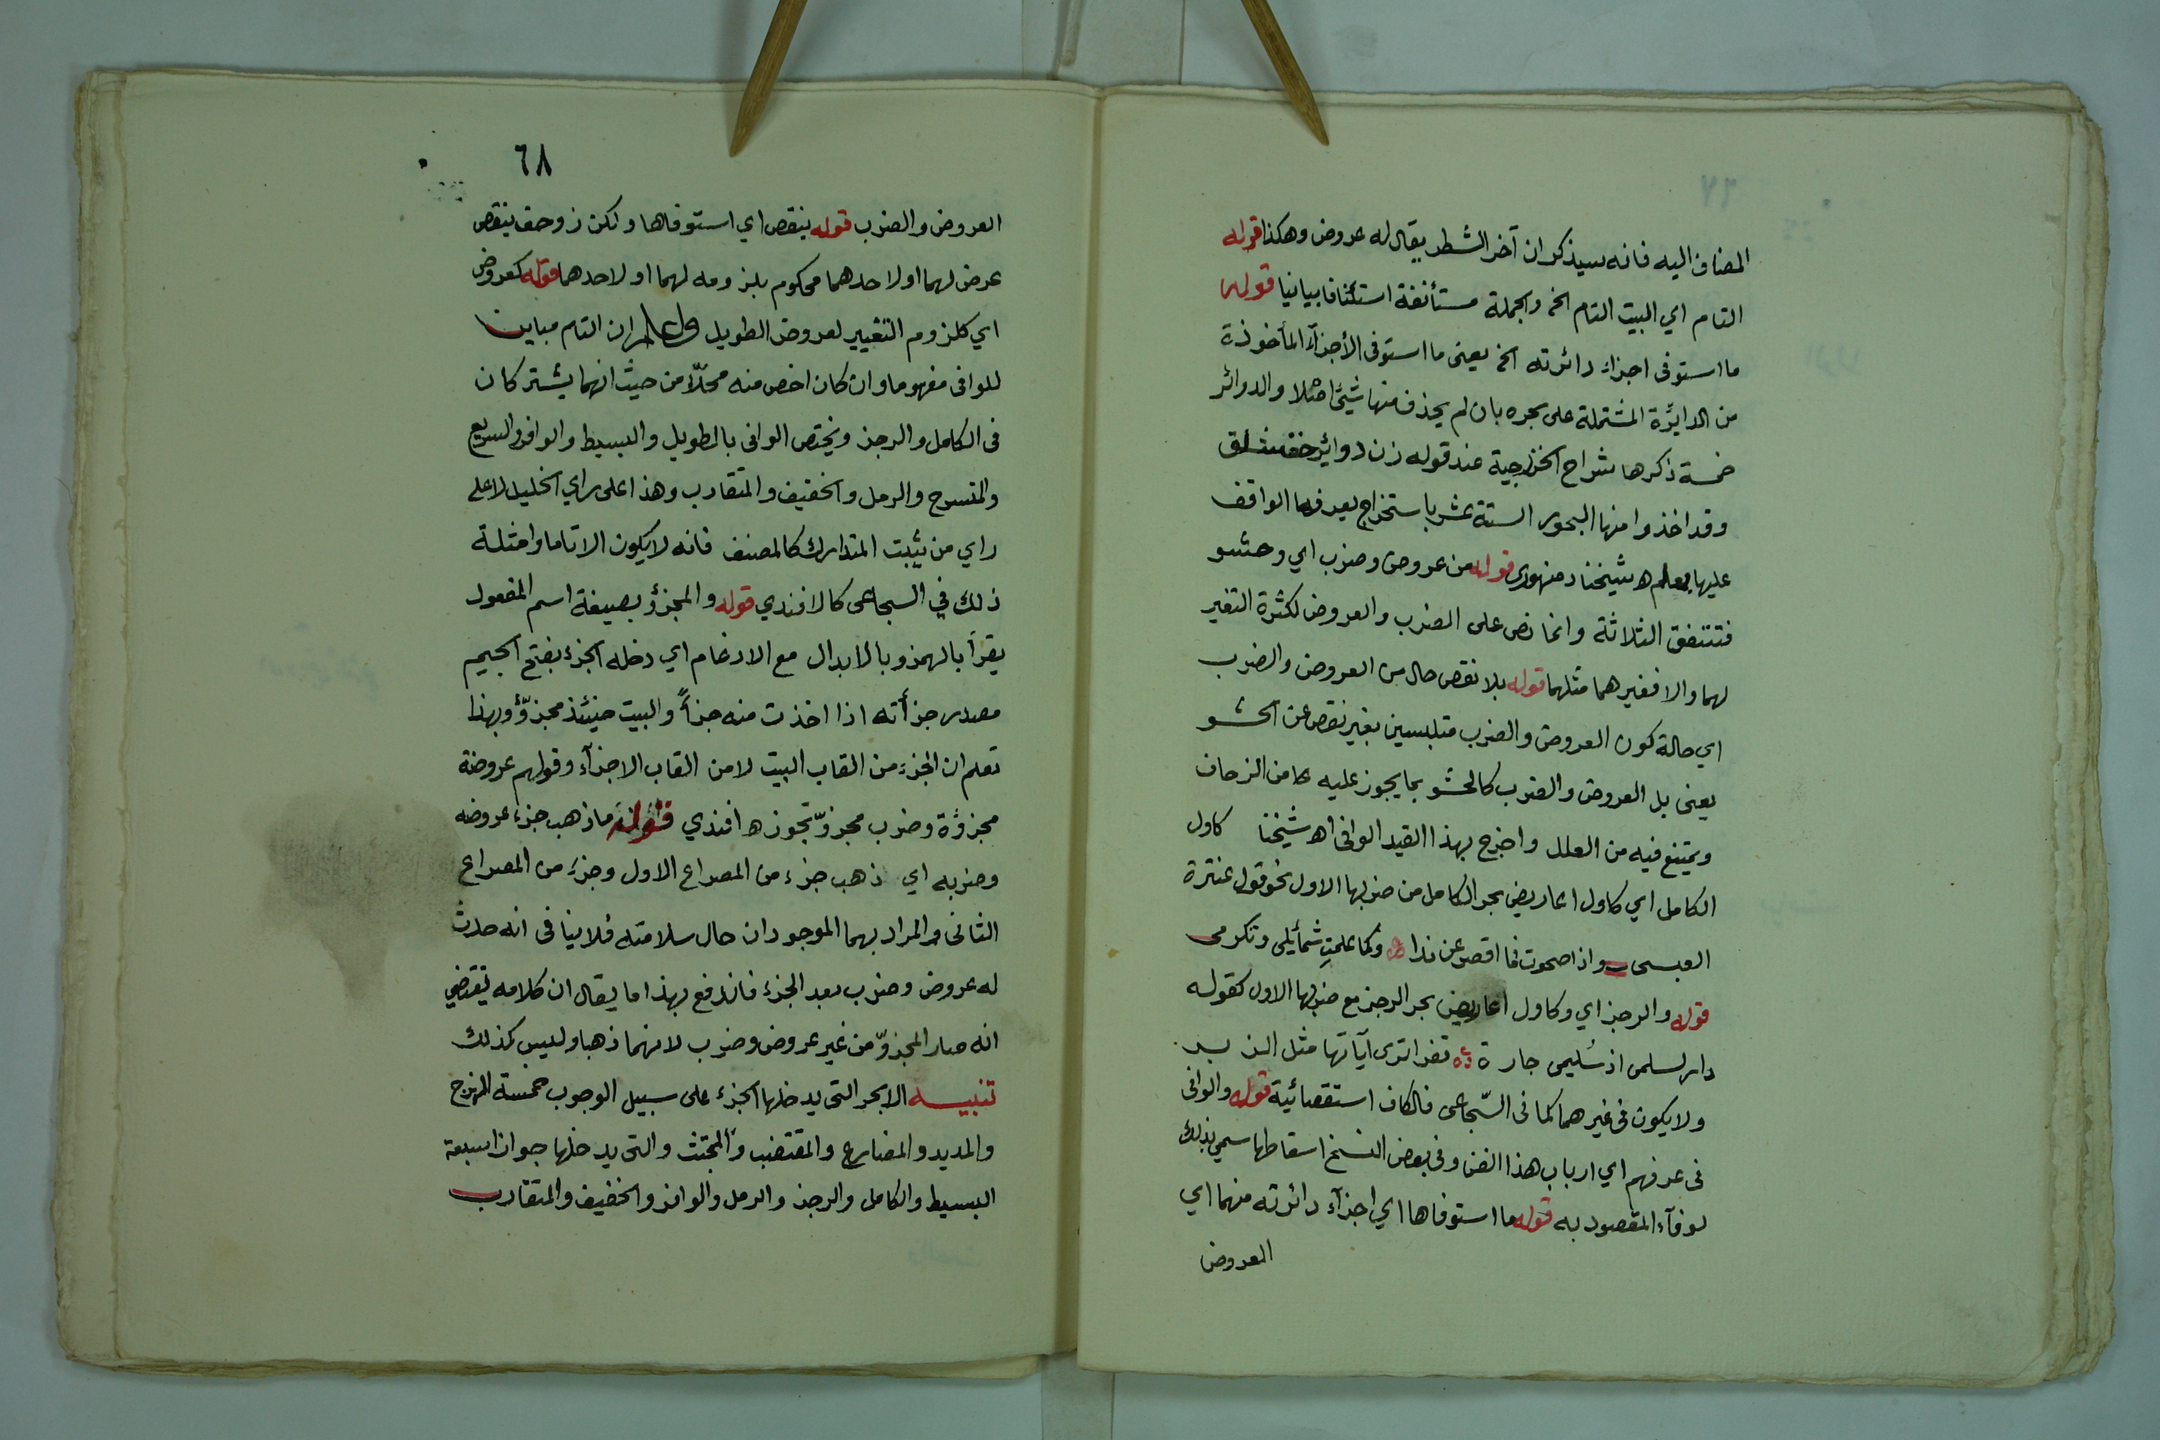 المضاف اليه فانه سيذكر ان آخر الشطر يقال له عروض وهكذا قوله
التام اي البيت التام الخ والجملة مستأنفة استئنافا بيانيا قوله
ما استوفى اجزاء دائرته الخ يعنى ما استوفى الأجزآء المأخوذة
من الدايرة المشتملة على بحره بان لم يحذف منها شيئا اصلا والدوائر
خمسة ذكرها شراح الخزرجية عند قوله زن دوائر خفشلق
وقد اخذوا منها البحور الستة عشر باستخراج يعرفها الواقف
عليها بعلم ه شيخنا دمنهورى قوله من عروض وضرب اي وحشو
فتتفق الثلاثة وانما نص على الضرب والعروض لكثرة التغير
لهما والا فغيرهما مثلهما قوله بلا نقص حال من العروض والضرب
اي حالة كون العروض والضرب متلبسين بغير نقص عن الحشو
يعنى بل العروض والضرب كالحشو بما يجوز عليه من الزحاف
ويمتنع فيه من العلل واخرج بهذا القيد الوافى اه شيخنا كاول
الكامل اي كاول اعاريض بحر الكامل من ضربها الاول نحو قول عنترة
العبسى واذا صحوت فما اقصر عن ندا وكما علمتِ شمائلى وتكرمى
قوله والرجز اي وكاول اعاريض بحر الرجز مع ضربها الاول كقوله
دار لسلمى اذ سُليمى جارة قفرا ترى آياتها مثل الزبر
ولا يكون فى غيرهما كما فى السّجاعى فالكاف استقصائية قوله والوافى
فى عرفهم اي ارباب هذا الفن وفى بعض النسخ اسقاطها سمي بذلك
لوفآء المقصود به قوله ما استوفاها اي اجزآء دائرته منهما اي
العروض
٦٨
العروض والضرب قوله ينقص اي استوفاها ولكن زوحف ينقص
عرض لهما او لاحدهما محكوم بلزومه لهما او لاحدهما قوله كعروض
اي كلزوم التغيير لعروض الطويل واعلم ان التام مباين
للوافى مفهوما وان كان اخص منه محلّا من حيث انهما يشتركان
فى الكامل والرجز ويختص الوافى بالطويل والبسيط والوافر والسريع
والمنسرح والرمل والخفيف والمتقارب وهذا على راي الخليل لا على
راي من يثبت المتدارك كالمصنف فانه لا يكون الا تاما وامثلة
ذلك في السجاعى كالافندي قوله والمجزؤ بصيغة اسم المفعول
يقرأ بالهمز وبالابدال مع الادغام اي دخله الجزء بفتح الجيم
مصدر جزأته اذا اخذت منه جزأً والبيت حينئذ مجزوّ وبهذا
تعلم ان الجزء من القاب البيت لا من القاب الاجزآء وقولهم عروضة
مجزوّة وضرب مجزوّ تجوز ه افندي قوله ما ذهب جزء عروضه
وضربه اي ذهب جزء من المصراع الاول وجزء من المصراع
الثانى والمراد بهما الموجودان حال سلامته فلا ينافى انه حدث
له عروض وضرب بعد الجزء فاندفع بهذا ما يقال ان كلامه يقتضي
انه صار المجزوّ من غير عروض وضرب لانهما ذهبا وليس كذلك
تنبيه الابحر التى يدخلها الجزء على سبيل الوجوب خمسة الهزج
والمديد والمضارع والمقتضب والمجتث والتى يدخلها جوازا سبعة
البسيط والكامل والرجز والرمل والوافر والخفيف والمتقارب